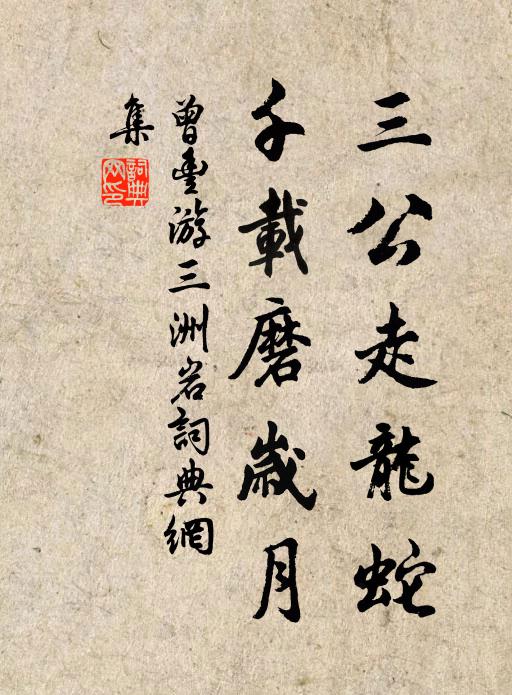 三公走龍蛇
千載磨歲月
曾豊游三洲岩詞典網
集
詞典網印